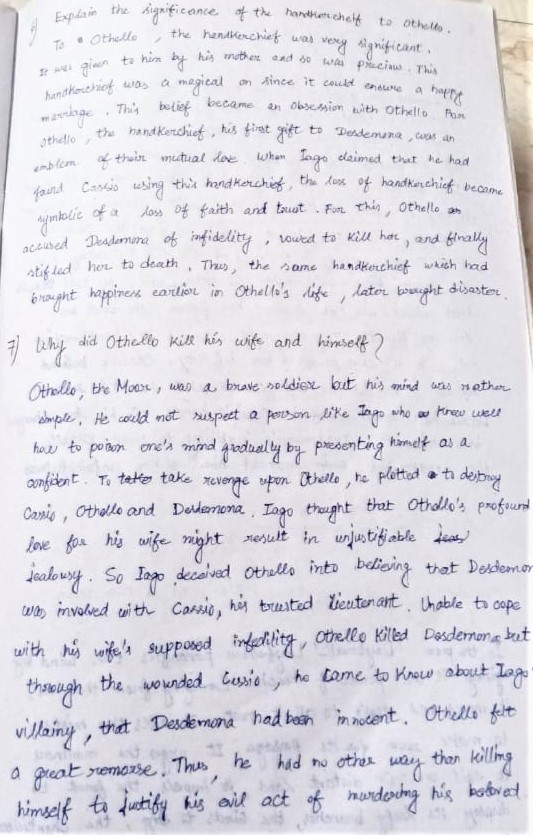 6) Explain the significance of the handkerchelf to Othello.
To Othello, the handkerchief was very significant.
It was given to him by his mother and so was precious. This
handkerchief was a magical on since it could ensure a happy
marriage. This belief became an obsession with Othello. For
Othello, the handkerchief, his first gift to Desdemena, was an
emblem of their mutual love. When Iago claimed that he had
faund Cassio using this handkerchief, the loss of handkerchief became
symbolic of a loss of faith and trust. For this, Othello
accused Desdemona of infidelity, vowed to kill her, and finally
stifled her to death. Thus, the same handkerchief which had
brought happiness earlier in Othello's life, later brought disaster.
7) Why did Othello kill his wife and himself?
Othello, the Moor, was a brave soldier but his mind was rather
simple. He could not suspect a person like Iago who knew well
how to poison one's mind gradually by presenting himself as a
confident. To take revenge upon Othello, he plotted to destroy
Cassio, Othello and Desdemona. Iago thought that Othello's profound
love for his wife might result in unjustifiable
jealousy. So Iago deceived Othello into believing that Desdemon
was involved with Cassio, his trusted lieutenant. Unable to cope
with his wife's supposed infedility, Othello killed Desdemona but
through the wounded Cassio, he came to know about Iago'
villainy, that Desdemona had been innocent. Othello felt
a great remorse. Thus, he had no other way than killing
himself to justify his evil act of murdering his beloved.